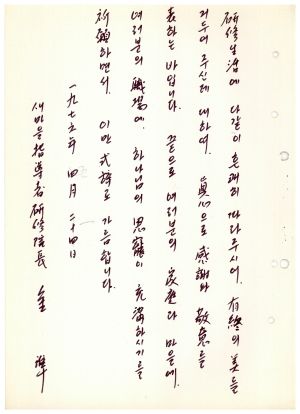 硏修生活에 다같이 흔쾌히 따라주시어, 有終의 美를
거두어 주신데 대하여, 眞心으로 感謝와 敬意를
表하는 바입니다. 끝으로 여러분의 家庭과 마을에,
여러분의 職場에, 하나님의 恩寵이 充滿하시기를
祈願하면서, 이만 式辭로 가름합니다.
一九七六年 四月 二十四日
새마을指導者硏修院長 金 準